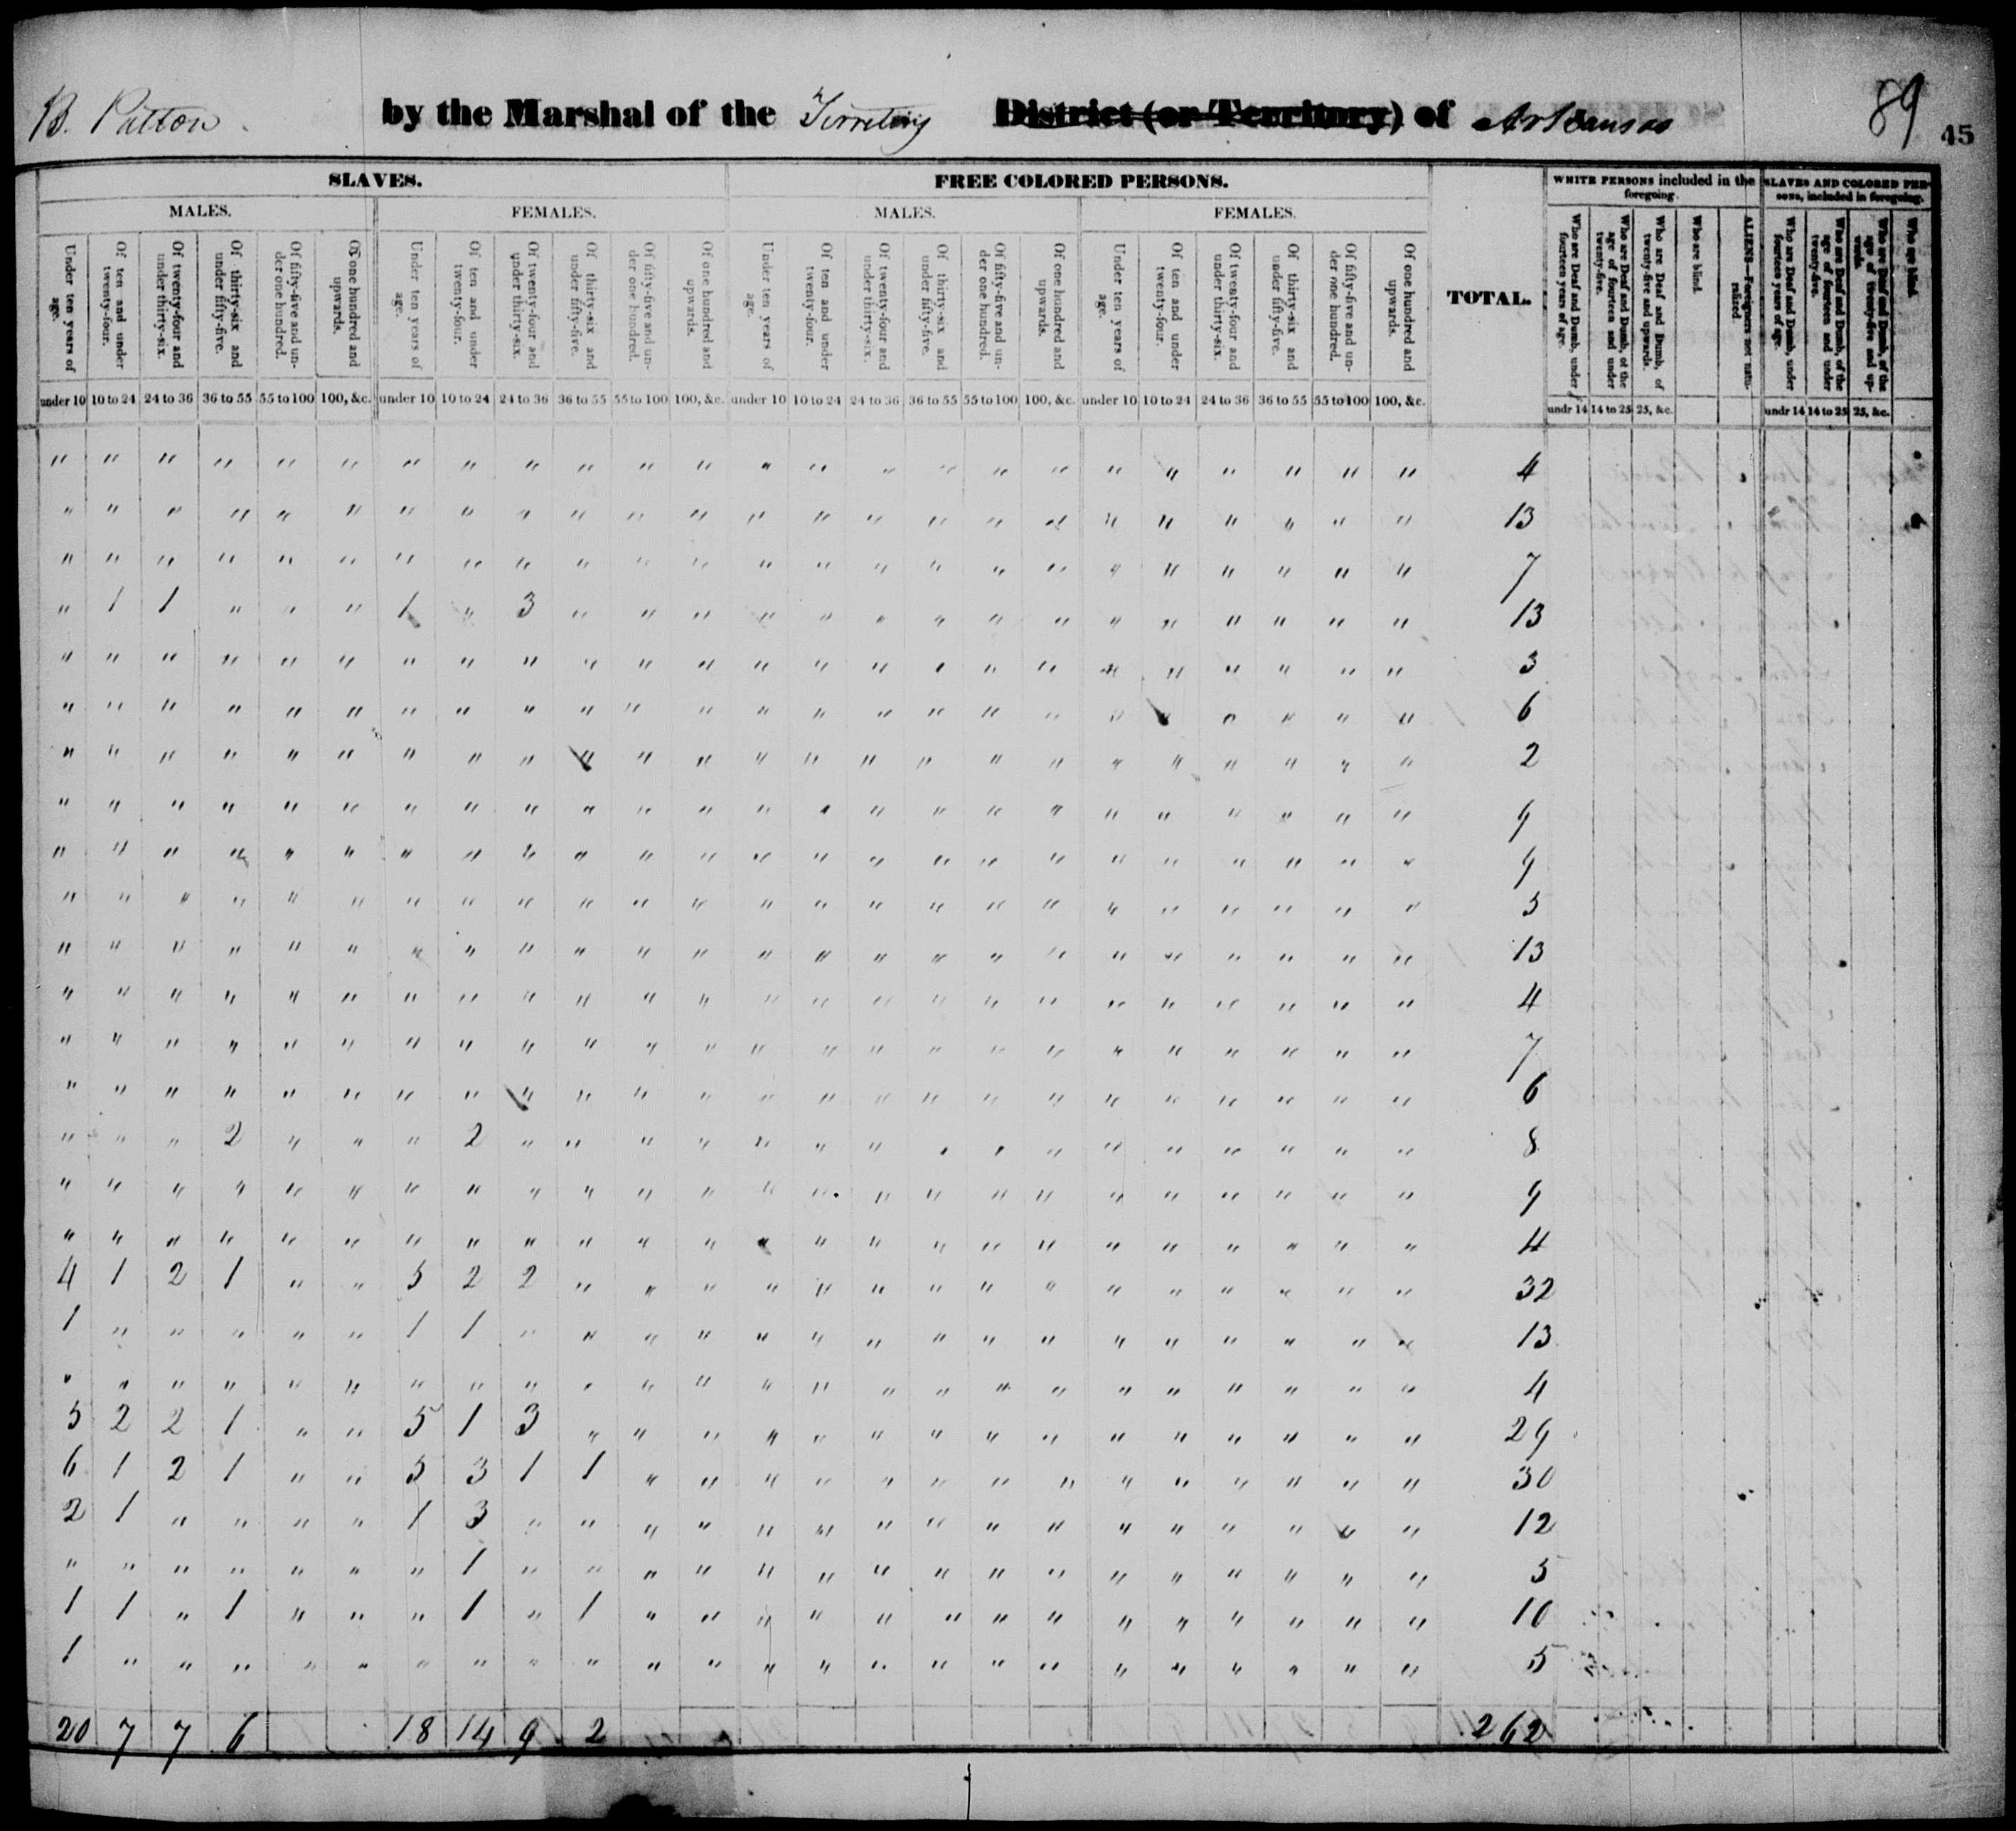 B. Patton by the Marshal of the Territory District (or Territory) of Arkansas 89 45
SLAVES. FREE COLORED PERSONS. TOTAL. WHITE PERSONS included in the foregoing. SLAVES AND COLORED PERSONS, included in foregoing.
MALES. FEMALES. MALES. FEMALES.
Under ten years of age. Of ten and under twenty-four. Of twenty-four and under thirty-six. Of thirty-six and under fifty-five. Of fifty-five and under one hundred. Of one hundred and upwards. Under ten years of age. Of ten and under twenty-four. Of twenty-four and under thirty-six. Of thirty-six and under fifty-five. Of fifty-five and under one hundred. Of one hundred and upwards. Under ten years of age. Of ten and under twenty-four. Of twenty-four and under thirty-six. Of thirty-six and under fifty-five. Of fifty-five and under one hundred. Of one hundred and upwards. Under ten years of age. Of ten and under twenty-four. Of twenty-four and under thirty-six. Of thirty-six and under fifty-five. Of fifty-five and under one hundred. Of one hundred and upwards. Who are Deaf and Dumb, under fourteen years of age. Who are Deaf and Dumb, of the age of fourteen and under twenty-five. Who are Deaf and Dumb, of twenty-five and upwards. Who are blind. ALIENS—Foreigners not naturalized. Who are Deaf and Dumb, under fourteen years of age. Who are Deaf and Dumb, of the age of fourteen and under twenty-five. Who are Deaf and Dumb, of the age of twenty-five and upwards. Who are blind.
under 10 10 to 24 24 to 36 36 to 55 55 to 100 100, &c. under 10 10 to 24 24 to 36 36 to 55 55 to 100 100, &c. under 10 10 to 24 24 to 36 36 to 55 55 to 100 100, &c. under 10 10 to 24 24 to 36 36 to 55 55 to 100 100, &c. undr 14 14 to 25 25, &c. undr 14 14 to 25 25, &c.
" " " " " " " " " " " " " " " " " " " " " " " " 4
" " " " " " " " " " " " " " " " " " " " " " " " 13
" " " " " " " " " " " " " " " " " " " " " " " " 7
" 1 1 " " " 1 " 3 " " " " " " " " " " " " " " " 13
" " " " " " " " " " " " " " " " " " " " " " " " 3
" " " " " " " " " " " " " " " " " " " " " " " " 6
" " " " " " " " " " " " " " " " " " " " " " " " 2
" " " " " " " " " " " " " " " " " " " " " " " " 9
" " " " " " " " " " " " " " " " " " " " " " " " 9
" " " " " " " " " " " " " " " " " " " " " " " " 5
" " " " " " " " " " " " " " " " " " " " " " " " 13
" " " " " " " " " " " " " " " " " " " " " " " " 4
" " " " " " " " " " " " " " " " " " " " " " " " 7
" " " " " " " " " " " " " " " " " " " " " " " " 6
" " " 2 " " " 2 " " " " " " " " " " " " " " " " 8
" " " " " " " " " " " " " " " " " " " " " " " " 9
" " " " " " " " " " " " " " " " " " " " " " " " 4
4 1 2 1 " " 5 2 2 " " " " " " " " " " " " " " " 32
1 " " " " " 1 1 " " " " " " " " " " " " " " " " 13
" " " " " " " " " " " " " " " " " " " " " " " " 4
5 2 2 1 " " 5 1 3 " " " " " " " " " " " " " " " 29
6 1 2 1 " " 5 3 1 1 " " " " " " " " " " " " " " 30
2 1 " " " " 1 3 " " " " " " " " " " " " " " " " 12
" " " " " " " 1 " " " " " " " " " " " " " " " " 5
1 1 " 1 " " " 1 " 1 " " " " " " " " " " " " " " 10
1 " " " " " " " " " " " " " " " " " " " " " " " 5
20 7 7 6 18 14 9 2 262